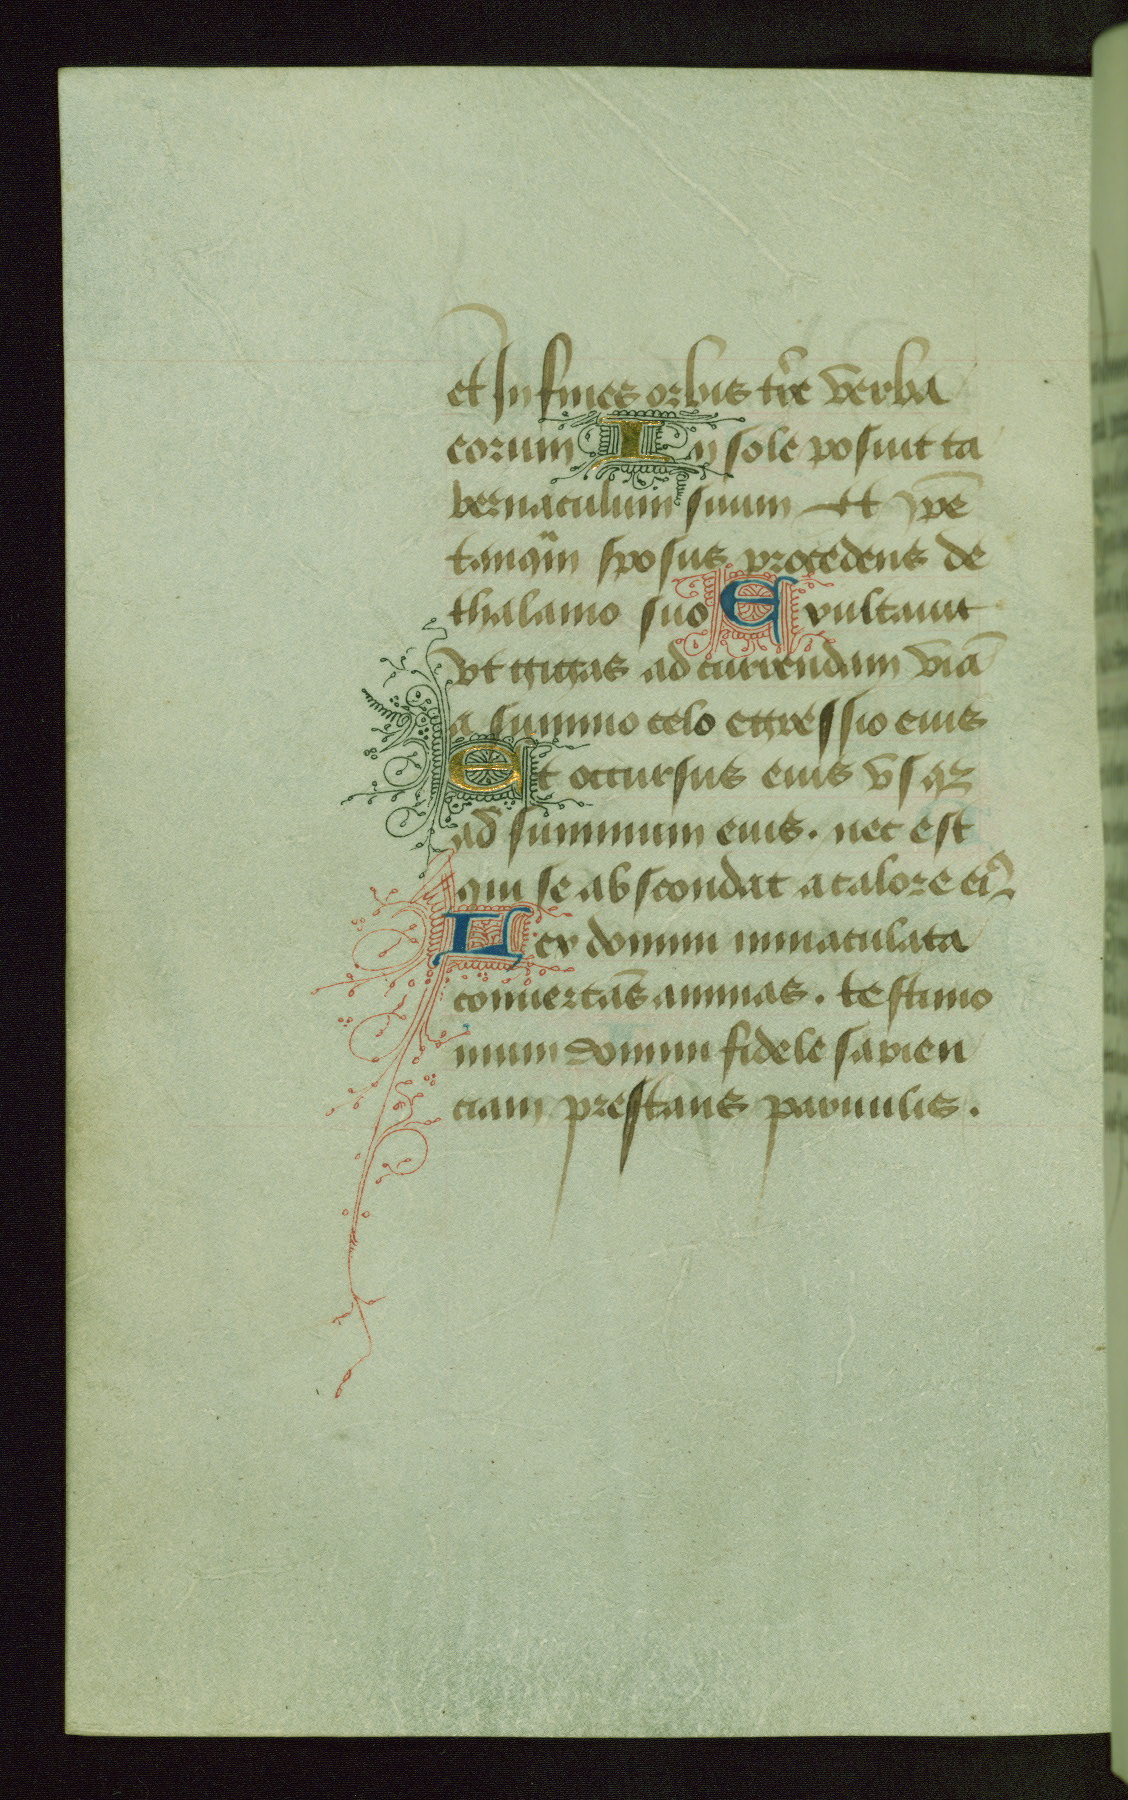 et In fines orbis tr̄e verba
eorum In sole posuit ta
bernaculum suum Et ip̄e
tanq̃m sposus procedens de
thalamo suo Exultauit
vt gigas ad currendam viā
a summo celo egressio eius
Et occursus eius vsqꝫ
ad summum eius. nec est
qui se abscondat a calore eiꝰ
Lex domini inmaculata
conuertēs animas. testimo
nium domini fidele sapien
ciam prestans paruulis.